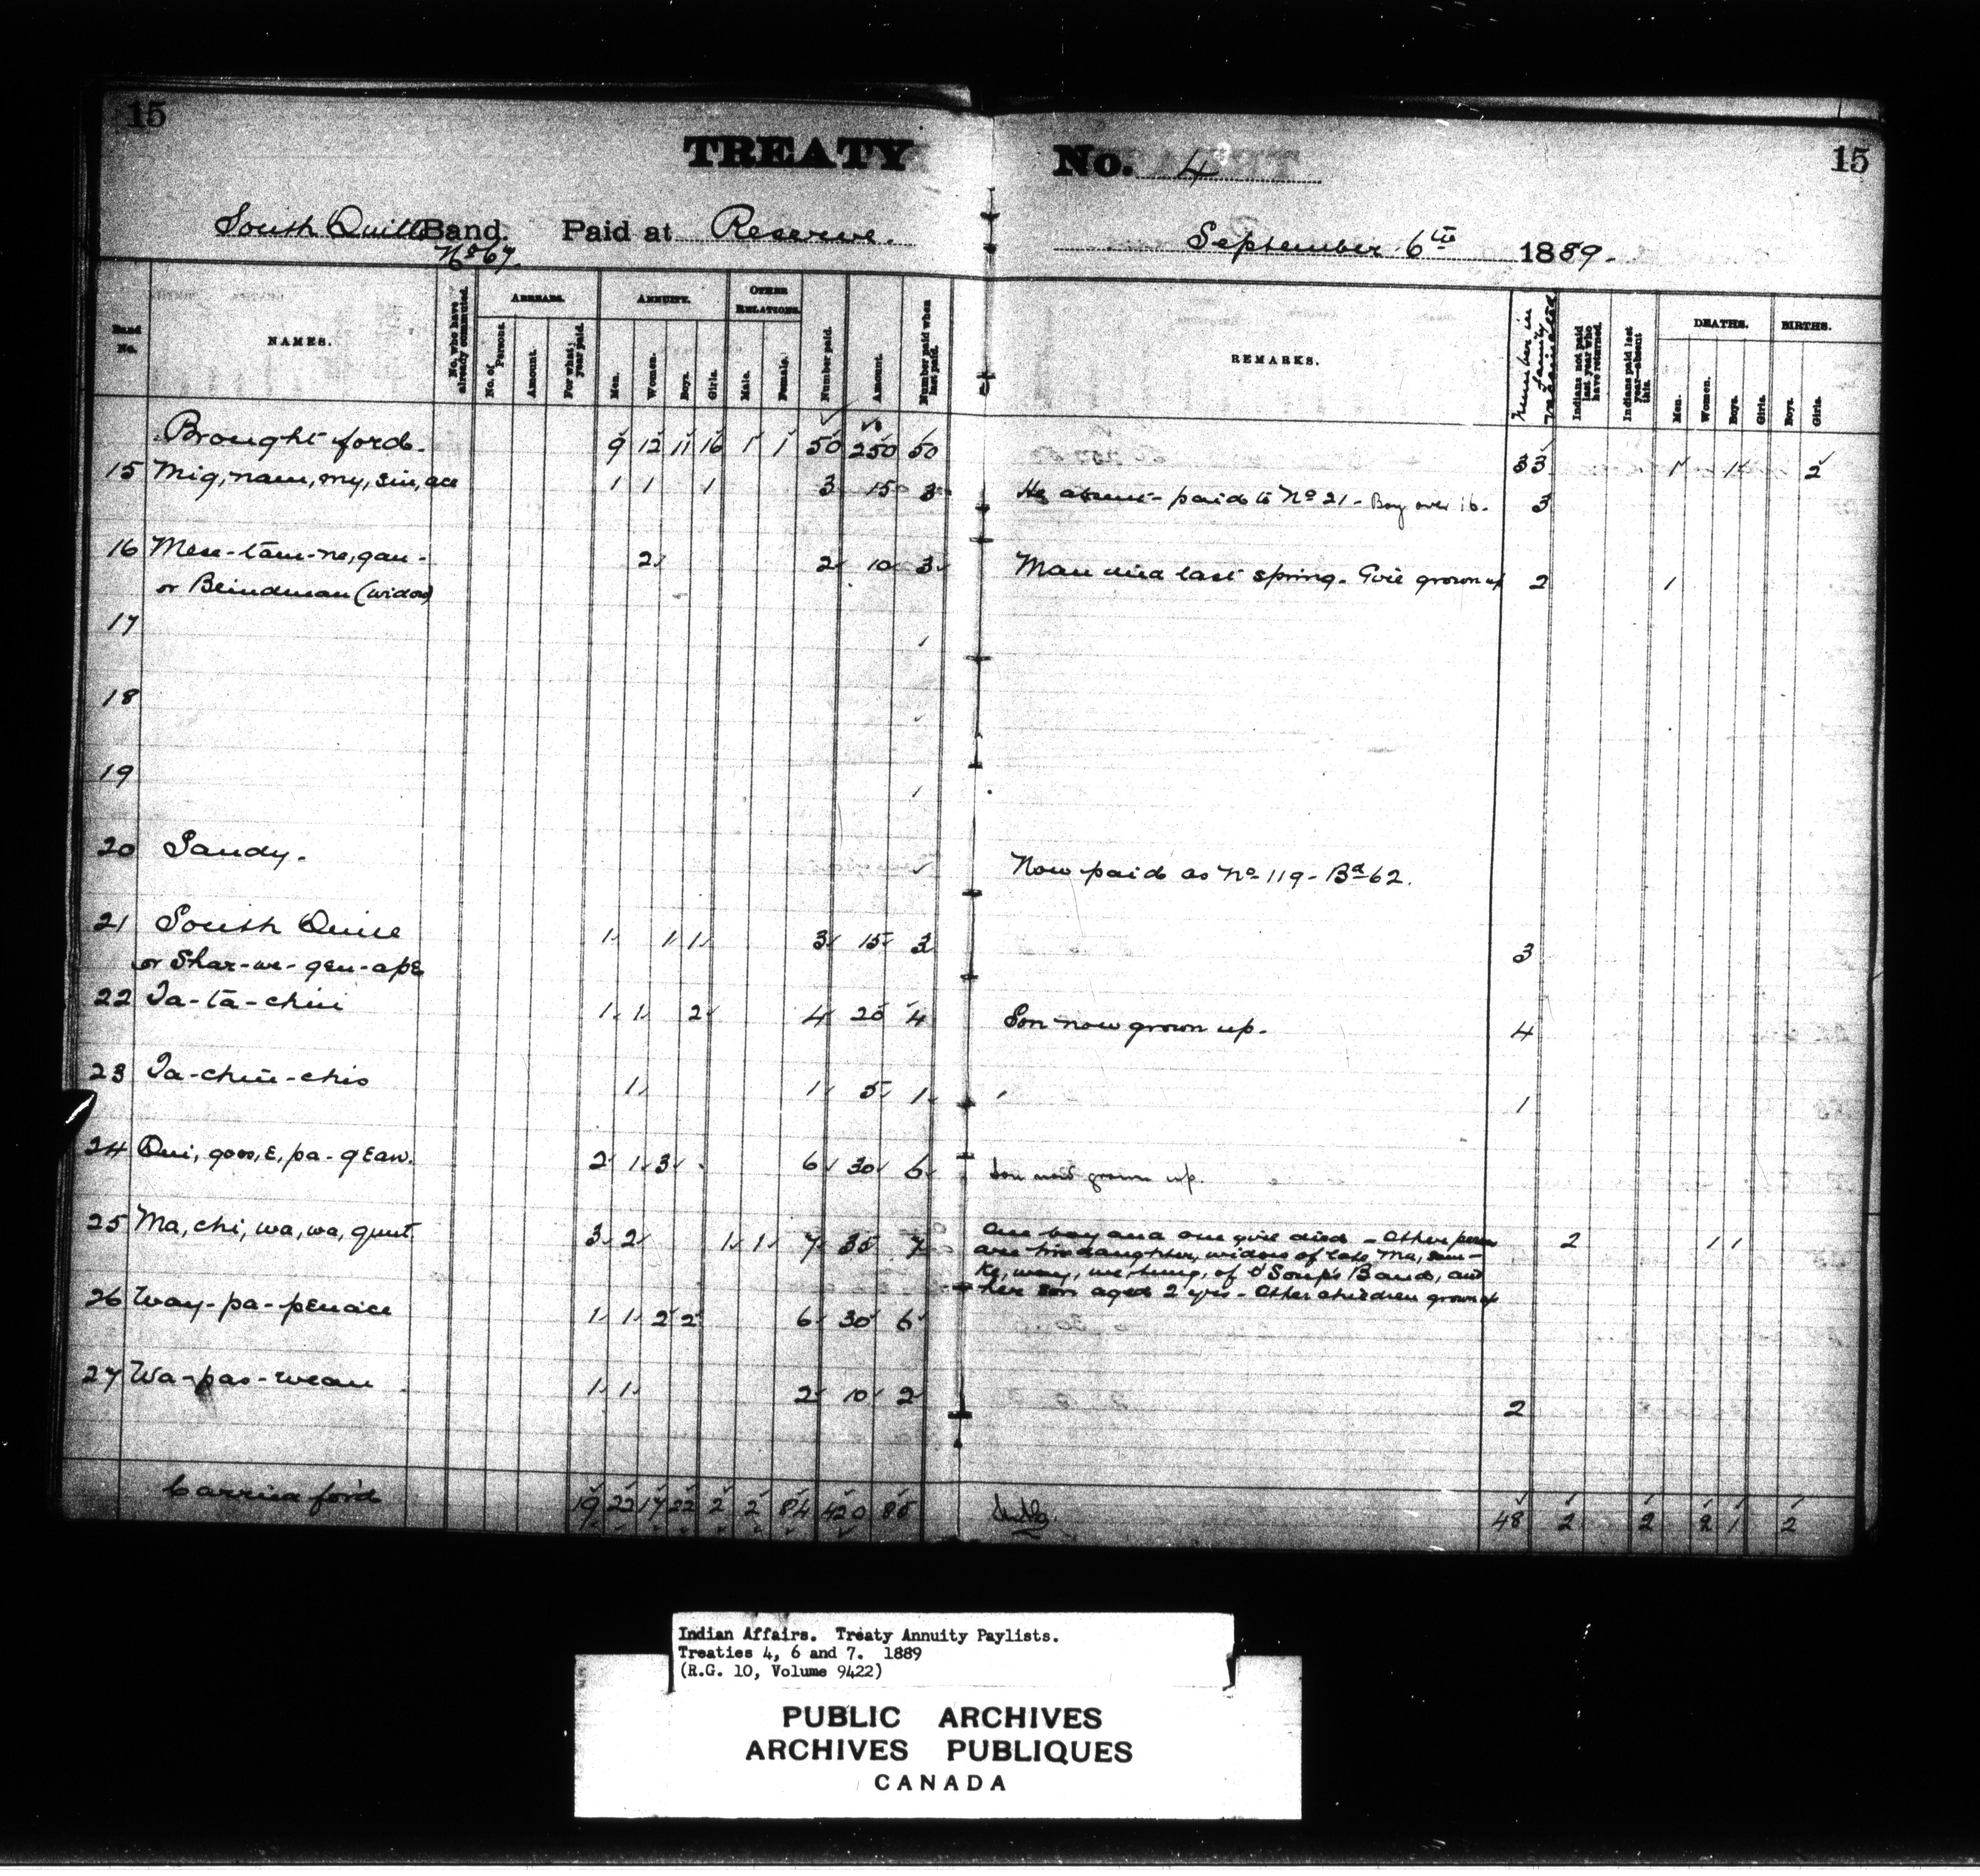 15
TREATY No. 4
15
South Quill Band. Paid at Reserve. September 6th 1889.
No 67.
Band No.
NAMES.
No. who have already commuted.
ARREARS.
No. of Persons.
Amount.
For what year paid.
ANNUITY.
Men.
Women.
Boys.
Girls.
OTHER RELATIONS.
Male.
Female.
Number paid.
Amount.
Number paid when last paid.
REMARKS.
Number in family
Indians not paid last year who have returned.
Indians paid last year—absent this.
DEATHS.
Men.
Women.
Boys.
Girls.
BIRTHS.
Boys.
Girls.
Brought ford. 9 12 11 16 1 1 50 250 50 33 1 1 2
15 Mig, nam, my, sin, ace 1 1 1 3 15 3 He absent - paid to No 21 - Boy over 16. 3
16 Mese-tam-ne, gan- 2 2 10 3 Man died last spring. Girl grown up 2 1
or Blindman (widow)
17
18
19
20 Sandy. Now paid as No 119 - Bd 62.
21 South Quill 1 1 1 3 15 3 3
or Shar-we-gen-apE
22 Ta-ta-chin 1 1 2 4 20 4 Son now grown up. 4
23 Ta-chin-chis 1 1 5 1 1
24 Qui, goos, E, pa-gEan. 2 1 3 6 30 6 Son now grown up.
25 Ma, chi, wa, wa, quut. 3 2 1 1 7 35 7 One boy and one girl died - Other 2 1 1
are his daughter, widow of late Ma,
of O'Soup's Band, and
her son aged 2 yrs - Other children grown up
26 Way-pa-penace 1 1 2 2 6 30 6
27 Wa-pas-wean 1 1 2 10 2 2
Carried ford 19 22 17 22 2 2 84 420 85 48 2 2 2 1 2
Indian Affairs. Treaty Annuity Paylists.
Treaties 4, 6 and 7. 1889
(R.G. 10, Volume 9422)
PUBLIC ARCHIVES
ARCHIVES PUBLIQUES
CANADA